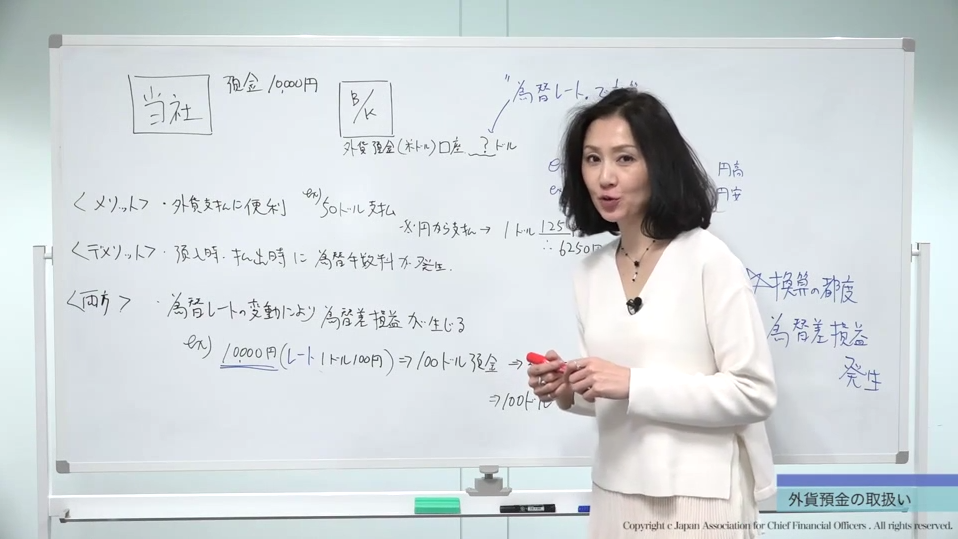 当社
預金 10,000円
B/K
外貨預金(米ドル)口座 ? ドル
"為替レート"で
円高
円安
<メリット>・外貨支払に便利
ex) 50ドル支払
円から支払→ 1ドル125
∴6250円
<デメリット>・預入時・払出時に為替手数料が発生.
<両方> ・為替レートの変動により為替差損益が生じる
ex) 10,000円(レート1ドル100円)⇒100ドル預金⇒
⇒100ドル
換算の都度
為替差損益
発生
外貨預金の取扱い
Copyright c Japan Association for Chief Financial Officers . All rights reserved.